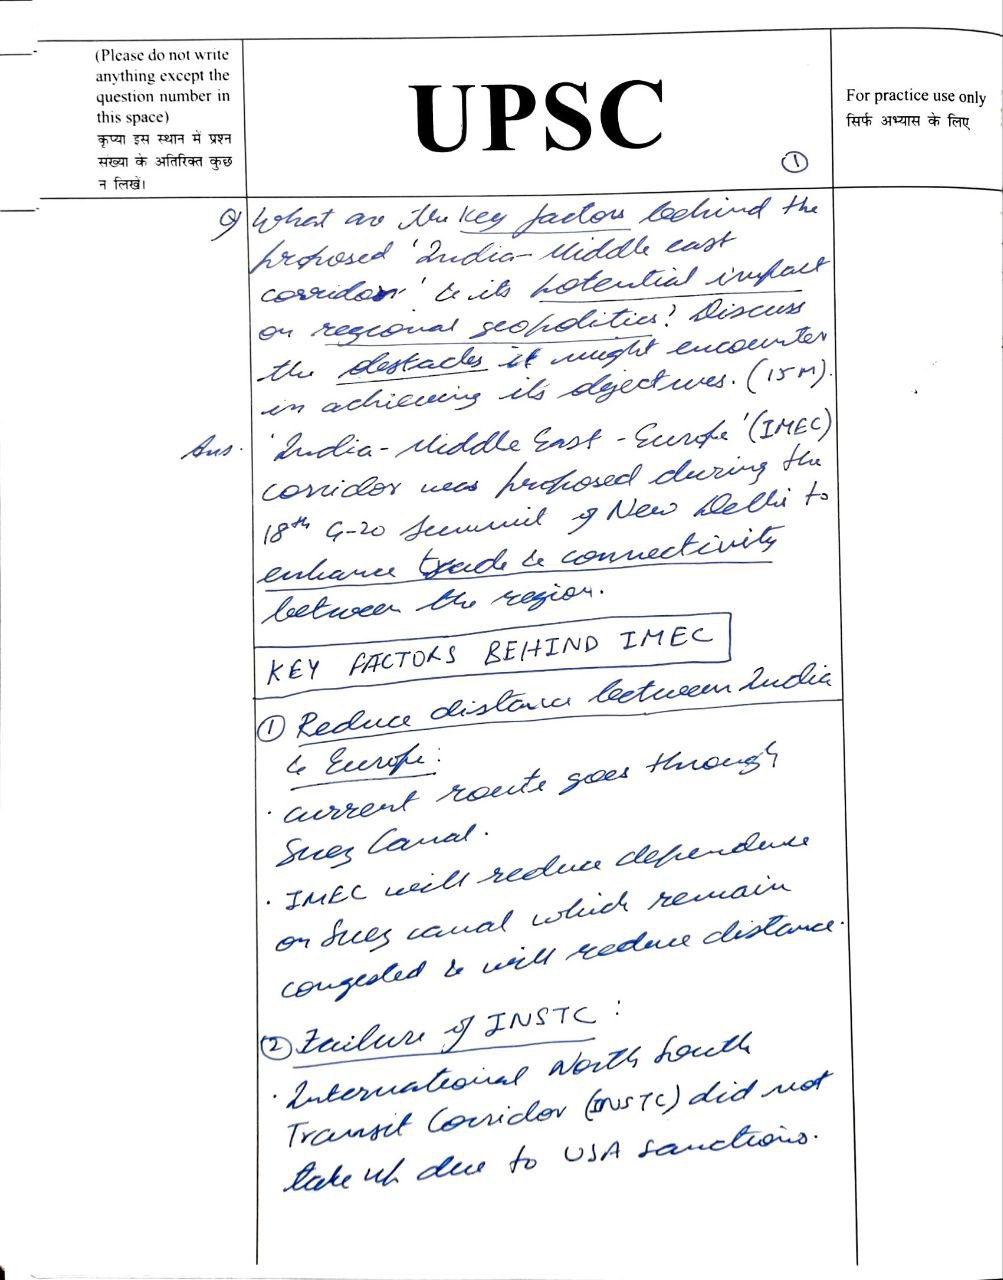 (Please do not write
anything except the
question number in
this space)
कृप्या इस स्थान में प्रश्न
संख्या के अतिरिक्त कुछ
न लिखें।
UPSC
For practice use only
सिर्फ अभ्यास के लिए
1
Q) What are the key factors behind the
proposed 'India-Middle east
corridor' & its potential impact
on regional geopolitics? Discuss
the obstacles it might encounter
in achieving its objectives. (15M).
Ans. 'India-Middle East-Europe' (IMEC)
corridor was proposed during the
18th G-20 Summit of New Delhi to
enhance trade & connectivity
between the region.
KEY FACTORS BEHIND IMEC
① Reduce distance between India
& Europe:
· current route goes through
Suez Canal.
· IMEC will reduce dependence
on Suez canal which remain
congested & will reduce distance.
② Failure of INSTC :
· International North South
Transit Corridor (INSTC) did not
take up due to USA sanctions.